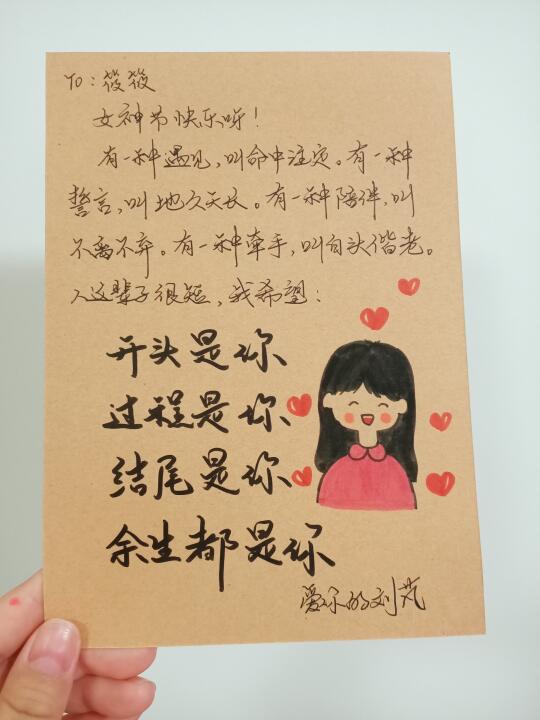 To：筱筱
女神节快乐呀！
有一种遇见，叫命中注定。有一种
誓言，叫地久天长。有一种陪伴，叫
不离不弃。有一种牵手，叫白头偕老。
人这辈子很短，我希望：
开头是你
过程是你
结尾是你
余生都是你
爱你的刘芃